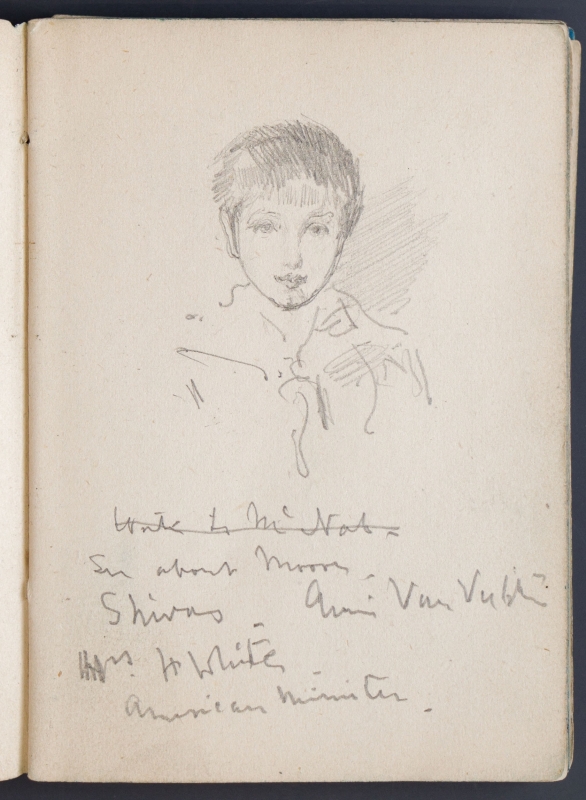 Write to Mc Nab.
See about Moore.
Shivas Van
Mrs. H White
American Minister.